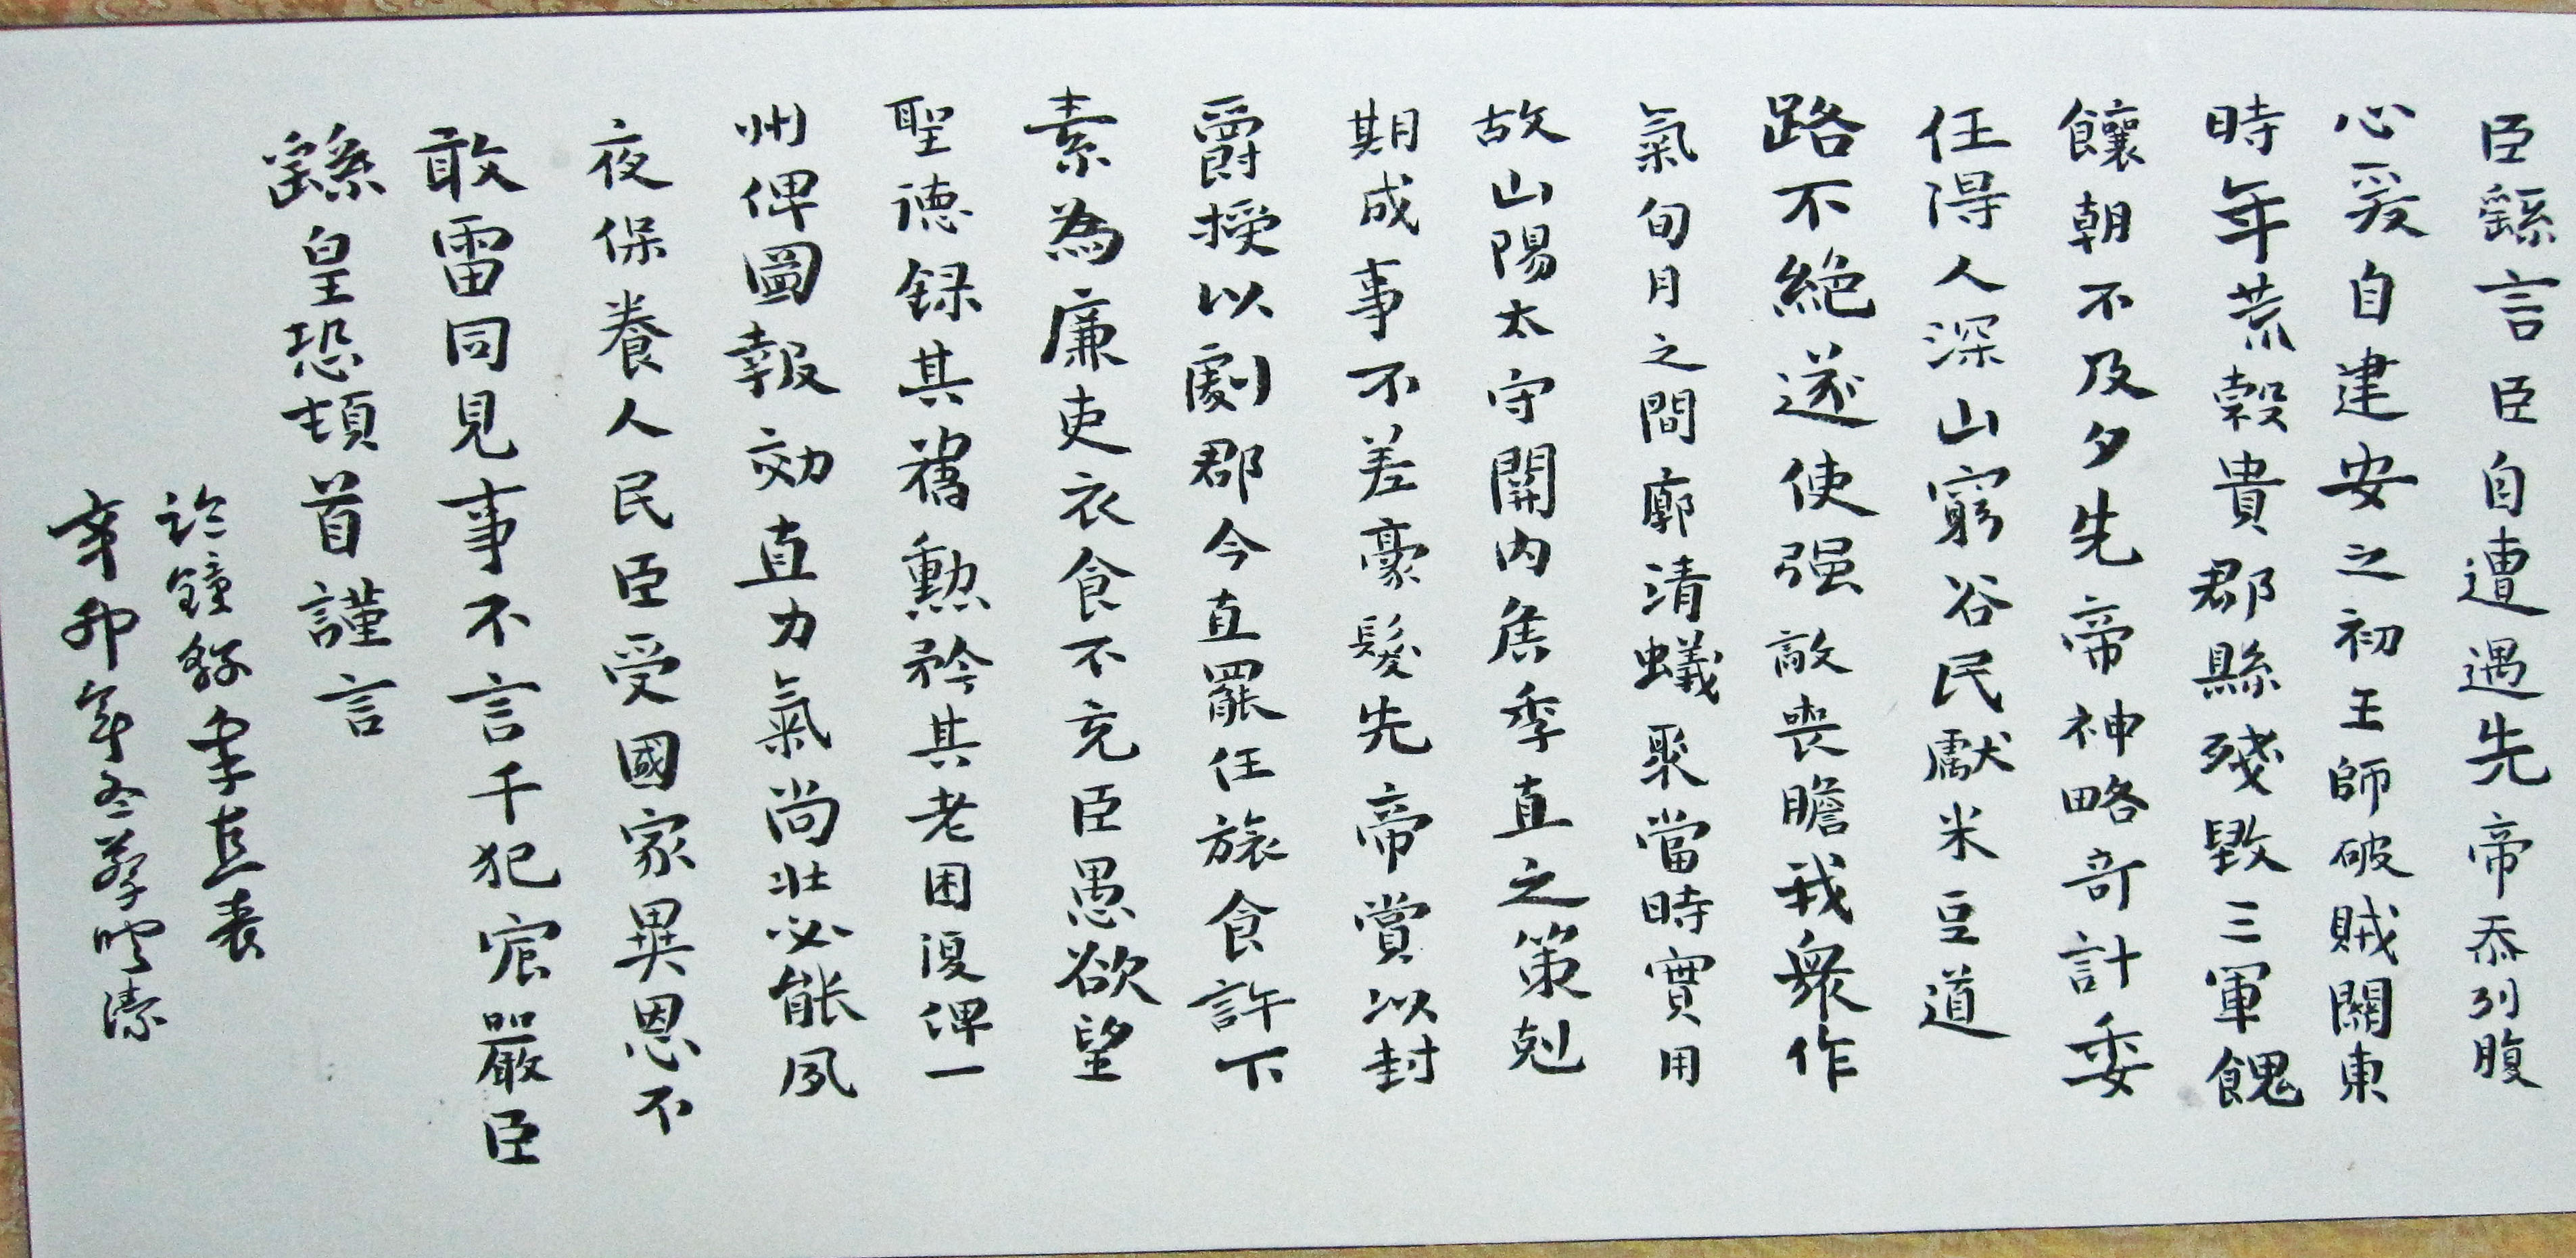 臣繇言臣自遭遇先帝忝列腹
心爰自建安之初王師破賊關東
時年荒穀貴郡縣殘毀三軍餽
饟朝不及夕先帝神略奇計委
任得人深山窮谷民獻米豆道
路不絕遂使强敵喪膽我衆作
氣旬月之間廓清蟻聚當時實用
故山陽太守關內侯季直之策剋
期成事不差豪髮先帝賞以封
爵授以劇郡今直罷任旅食許下
素為廉吏衣食不充臣愚欲望
聖德録其舊勲矜其老困復俾一
州俾圖報効直力氣尚壯必能夙
夜保養人民臣受國家異恩不
敢雷同見事不言干犯宸嚴臣
繇皇恐頓首謹言
臨鐘繇季直表
辛卯年冬